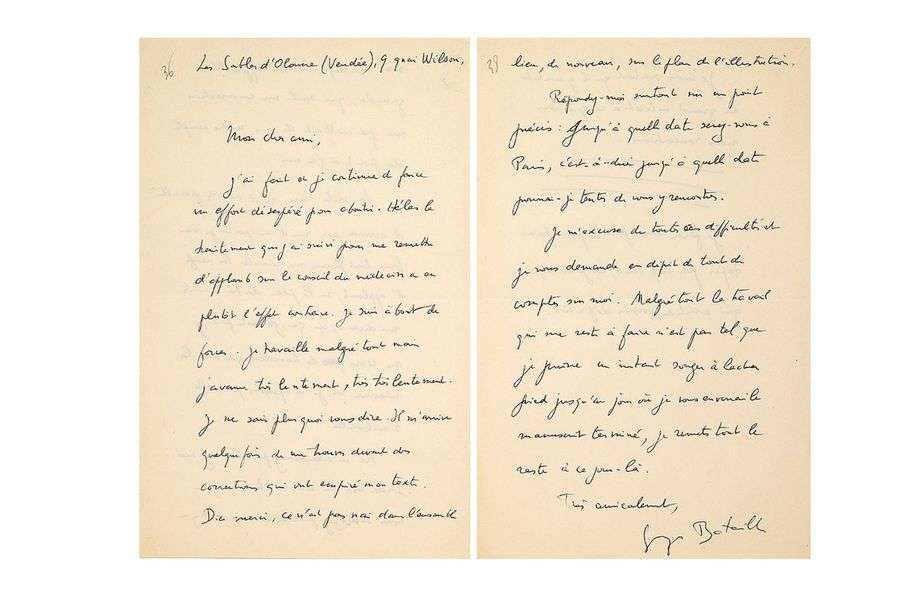 36
Les Sables d'Olonne (Vendée), 9 quai Wilson,
Mon cher ami,
J'ai fait et je continue de faire
un effort désespéré pour aboutir. Hélas le
traitement que j'ai suivi pour me remettre
d'applomb sur le conseil du médecin a eu
plutôt l'effet contraire. Je suis à bout de
forces : je travaille malgré tout mais
j'avance très lentement, très très lentement.
Je ne sais plus quoi vous dire. Il m'arrive
quelquefois de me trouver devant des
corrections qui ont empiré mon texte.
Dieu merci, ce n'est pas vrai dans l'ensemble
38
lieu, de nouveau, sur le plan de l'illustration.
Répondez-moi surtout sur un point
précis : Jusqu'à quelle date serez-vous à
Paris, c'est-à-dire jusqu'à quelle date
pourrai-je tenter de vous y rencontrer.
Je m'excuse de toutes ces difficultés et
je vous demande en dépit de tout de
compter sur moi. Malgré tout le travail
qui me reste à faire n'est pas tel que
je puisse un instant songer à lâcher
pied jusqu'au jour où je vous enverrai le
manuscrit terminé, je remets tout le
reste à ce jour-là.
Très amicalement,
Georges Bataille